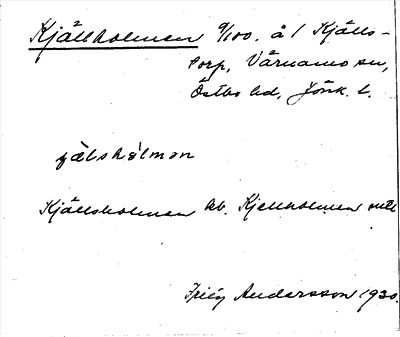 Kjällholmen 9/100. å 1 Kjälls-
torp, Värnamo sn,
Östbo hd, Jönk. l.
Kjällsholmen kb. Kjellholmen
Andersson 1930.